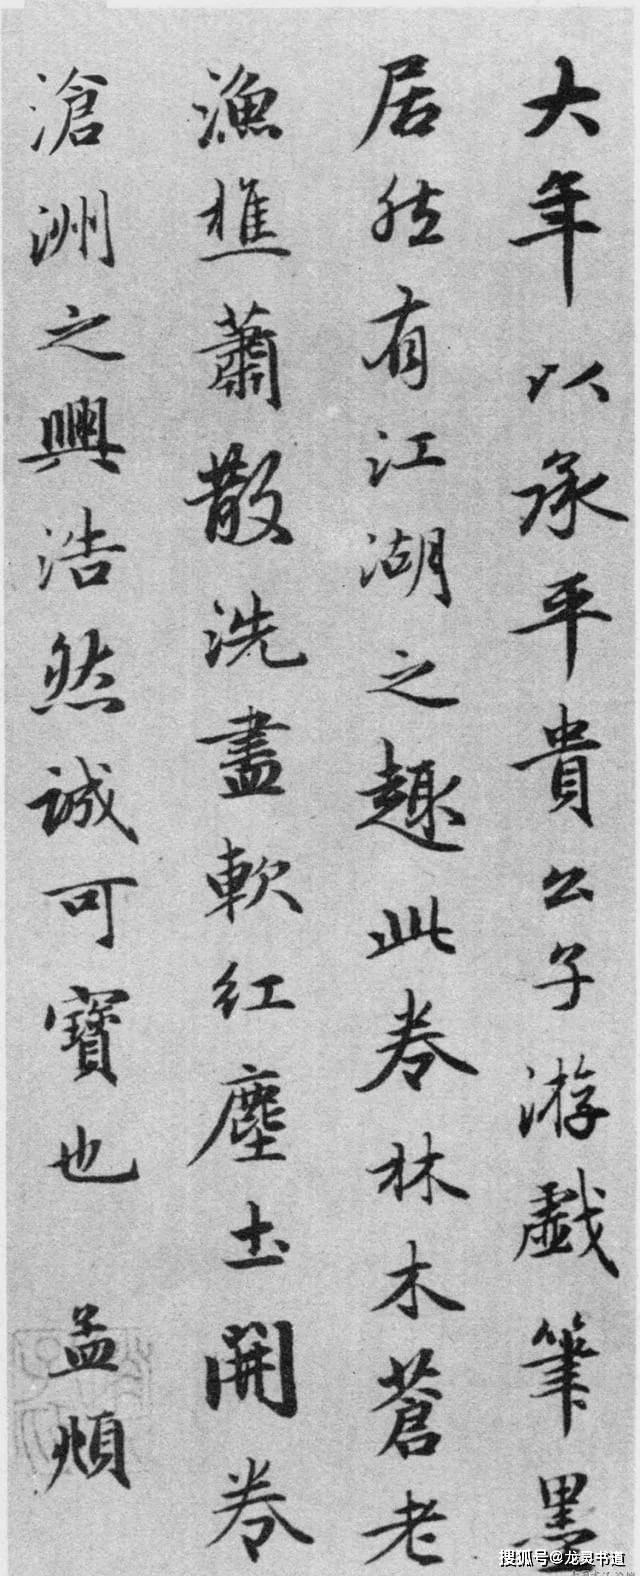 大年以承平貴公子游戲筆墨
居然有江湖之趣此卷林木蒼老
漁樵蕭散洗盡軟紅塵土開卷
滄洲之興浩然誠可寶也 孟頫
搜狐号@龙灵书道